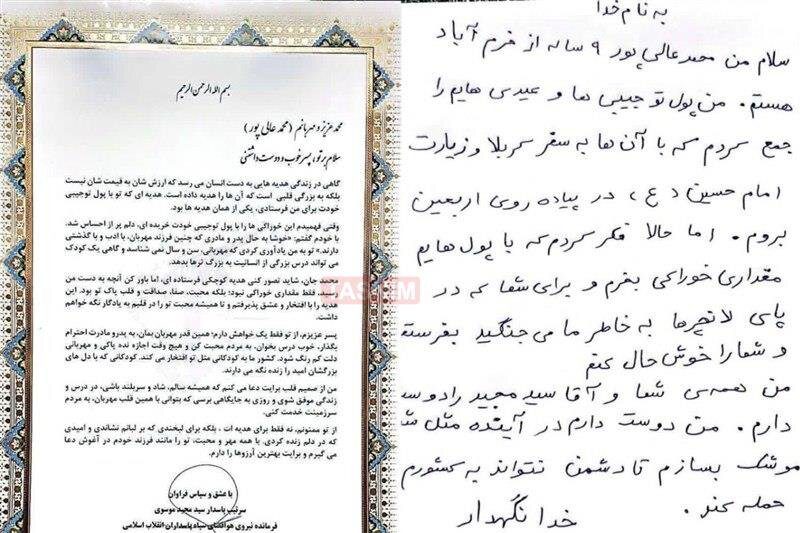 بسم الله الرحمن الرحیم
محمد عزیز و مهربانم (محمد عالی پور)
سلام بر تو، پسر خوب و دوست داشتنی
گاهی در زندگی هدیه هایی به دست انسان می رسد که ارزش شان به قیمت شان نیست
بلکه به بزرگی قلبی است که آن ها را هدیه داده است. هدیه ای که تو با پول توجیبی
خودت برای من فرستادی، یکی از همان هدیه ها بود.
وقتی فهمیدم این خوراکی ها را با پول توجیبی خودت خریده ای، دلم پر از احساس شد.
با خودم گفتم: «خوشا به حال پدر و مادری که چنین فرزند مهربان، با ادب و با گذشتی
دارند.» تو به من یادآوری کردی که مهربانی، سن و سال نمی شناسد و گاهی یک کودک
می تواند درس بزرگی از انسانیت به بزرگ ترها بدهد.
محمد جان، شاید تصور کنی هدیه کوچکی فرستاده ای، اما باور کن آنچه به دست من
رسید، فقط مقداری خوراکی نبود؛ بلکه محبت، صفا، صداقت و قلب پاک تو بود. این
هدیه را با افتخار و عشق پذیرفتم و تا همیشه محبت تو را در قلبم به یادگار نگه خواهم
داشت.
پسر عزیزم، از تو فقط یک خواهش دارم؛ همین قدر مهربان بمان، به پدر و مادرت احترام
بگذار، خوب درس بخوان، به مردم محبت کن و هیچ وقت اجازه نده پاکی و مهربانی
دلت کم رنگ شود. کشور ما به کودکانی مثل تو افتخار می کند. کودکانی که با دل های
بزرگشان امید را زنده نگه می دارند.
من از صمیم قلب برایت دعا می کنم که همیشه سالم، شاد و سربلند باشی، در درس و
زندگی موفق شوی و روزی به جایگاهی برسی که بتوانی با همین قلب مهربان، به مردم
سرزمینت خدمت کنی.
از تو ممنونم، نه فقط برای هدیه ات ، بلکه برای لبخندی که بر لبانم نشاندی و امیدی
که در دلم زنده کردی. با همه مهر و محبت، تو را مانند فرزند خودم در آغوش دعا
می گیرم و برایت بهترین آرزوها را دارم.
با عشق و سپاس فراوان
سرتیپ پاسدار سید مجید موسوی
فرمانده نیروی هوافضای سپاه پاسداران انقلاب اسلامی
به نام خدا
سلام من محمد عالی پور ۹ ساله از خرم آباد
هستم. من پول تو جیبی ها و عیدی هایم را
جمع کردم که با آن ها به سفر کربلا و زیارت
امام حسین (ع)، در پیاده روی اربعین
بروم. اما حالا فکر کردم که با پول هایم
مقداری خوراکی بخرم و برای شما که در
پای لانچرها به خاطر ما می جنگید بفرستم
و شما را خوش حال کنم
من همه ی شما و آقا سید مجید را دوست
دارم. من دوست دارم در آینده مثل شما
موشک بسازم تا دشمن نتواند به کشورم
حمله کند.
خدا نگهدار
TASNIM